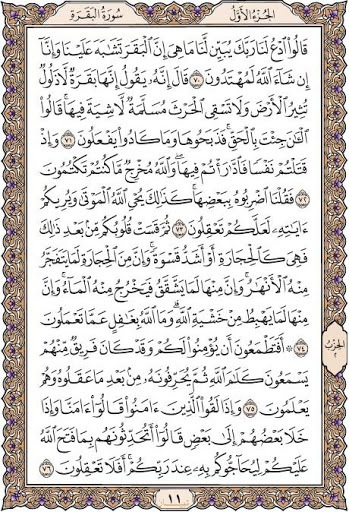 الجزء الأول
سورة البقرة
قَالُوا۟ ٱدْعُ لَنَا رَبَّكَ يُبَيِّن لَّنَا مَا هِىَ إِنَّ ٱلْبَقَرَ تَشَٰبَهَ عَلَيْنَا وَإِنَّآ
إِن شَآءَ ٱللَّهُ لَمُهْتَدُونَ ٧٠ قَالَ إِنَّهُۥ يَقُولُ إِنَّهَا بَقَرَةٌ لَّا ذَلُولٌ
تُثِيرُ ٱلْأَرْضَ وَلَا تَسْقِى ٱلْحَرْثَ مُسَلَّمَةٌ لَّا شِيَةَ فِيهَا ۚ قَالُوا۟
ٱلْـَٰٔنَ جِئْتَ بِٱلْحَقِّ ۚ فَذَبَحُوهَا وَمَا كَادُوا۟ يَفْعَلُونَ ٧١ وَإِذْ
قَتَلْتُمْ نَفْسًا فَٱدَّٰرَْٰٔتُمْ فِيهَا ۖ وَٱللَّهُ مُخْرِجٌ مَّا كُنتُمْ تَكْتُمُونَ
٧٢ فَقُلْنَا ٱضْرِبُوهُ بِبَعْضِهَا ۚ كَذَٰلِكَ يُحْىِ ٱللَّهُ ٱلْمَوْتَىٰ وَيُرِيكُمْ
ءَايَٰتِهِۦ لَعَلَّكُمْ تَعْقِلُونَ ٧٣ ثُمَّ قَسَتْ قُلُوبُكُم مِّنۢ بَعْدِ ذَٰلِكَ
فَهِىَ كَٱلْحِجَارَةِ أَوْ أَشَدُّ قَسْوَةً ۚ وَإِنَّ مِنَ ٱلْحِجَارَةِ لَمَا يَتَفَجَّرُ
مِنْهُ ٱلْأَنْهَٰرُ ۚ وَإِنَّ مِنْهَا لَمَا يَشَّقَّقُ فَيَخْرُجُ مِنْهُ ٱلْمَآءُ ۚ وَإِنَّ
مِنْهَا لَمَا يَهْبِطُ مِنْ خَشْيَةِ ٱللَّهِ ۗ وَمَا ٱللَّهُ بِغَٰفِلٍ عَمَّا تَعْمَلُونَ
٧٤ ۞ أَفَتَطْمَعُونَ أَن يُؤْمِنُوا۟ لَكُمْ وَقَدْ كَانَ فَرِيقٌ مِّنْهُمْ
يَسْمَعُونَ كَلَٰمَ ٱللَّهِ ثُمَّ يُحَرِّفُونَهُۥ مِنۢ بَعْدِ مَا عَقَلُوهُ وَهُمْ
يَعْلَمُونَ ٧٥ وَإِذَا لَقُوا۟ ٱلَّذِينَ ءَامَنُوا۟ قَالُوٓا۟ ءَامَنَّا وَإِذَا
خَلَا بَعْضُهُمْ إِلَىٰ بَعْضٍ قَالُوٓا۟ أَتُحَدِّثُونَهُم بِمَا فَتَحَ ٱللَّهُ
عَلَيْكُمْ لِيُحَآجُّوكُم بِهِۦ عِندَ رَبِّكُمْ ۚ أَفَلَا تَعْقِلُونَ ٧٦
الحزب
٢
١١